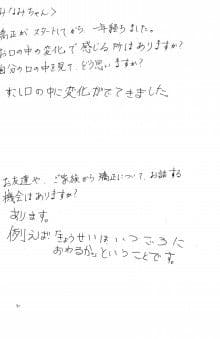 みなみちゃん>
矯正がスタートしてから一年経ちました。
お口の中の変化で感じる所はありますか?
自分の口の中を見て、どう思いますか?
むし口の中に変化がでてきました。
お友達や、ご家族から矯正について、お話する
機会はありますか?
あります。
例えばきょうせいはいつごろに
おわるか。ということです。